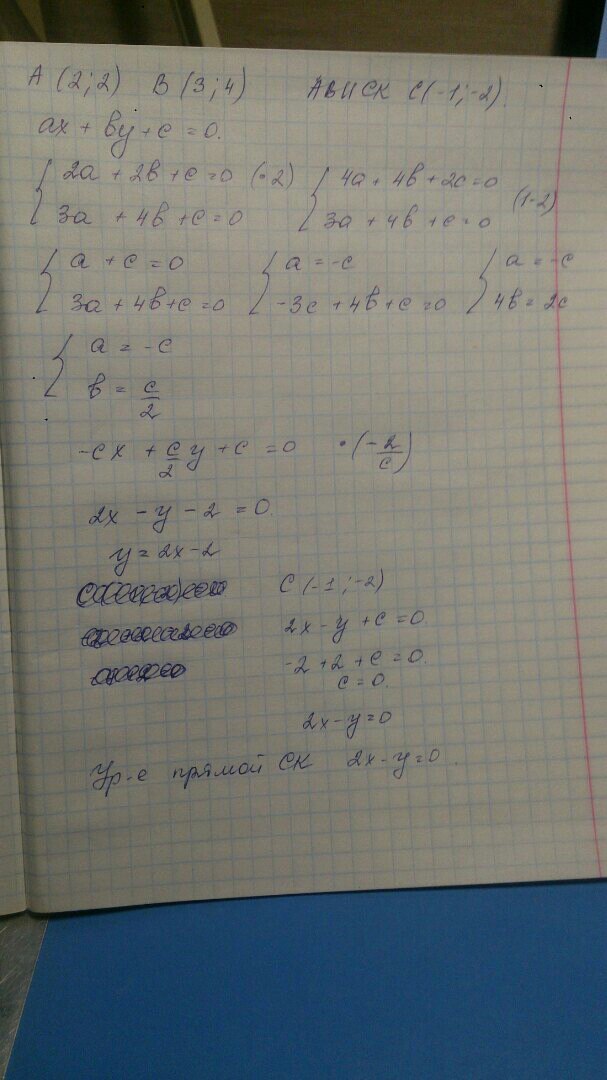 A (2;2) B (3;4) АВ || СК С(-1;-2).
ax + by + c = 0.
{ 2a + 2b + c = 0 (·2) { 4a + 4b + 2c = 0
3a + 4b + c = 0 3a + 4b + c = 0 (1-2)
{ a + c = 0 { a = -c { a = -c
3a + 4b + c = 0 -3c + 4b + c = 0 4b = 2c
{ a = -c
b = c/2
-cx + c/2 y + c = 0 ·(-2/c)
2x - y - 2 = 0
y = 2x - 2
C (-1;-2)
2x - y + c = 0.
-2 + 2 + c = 0.
c = 0.
2x - y = 0
Ур-е прямой СК 2x - y = 0.